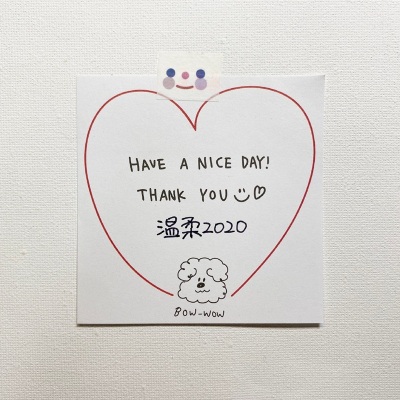 HAVE A NICE DAY!
THANK YOU
温柔2020
BOW-WOW